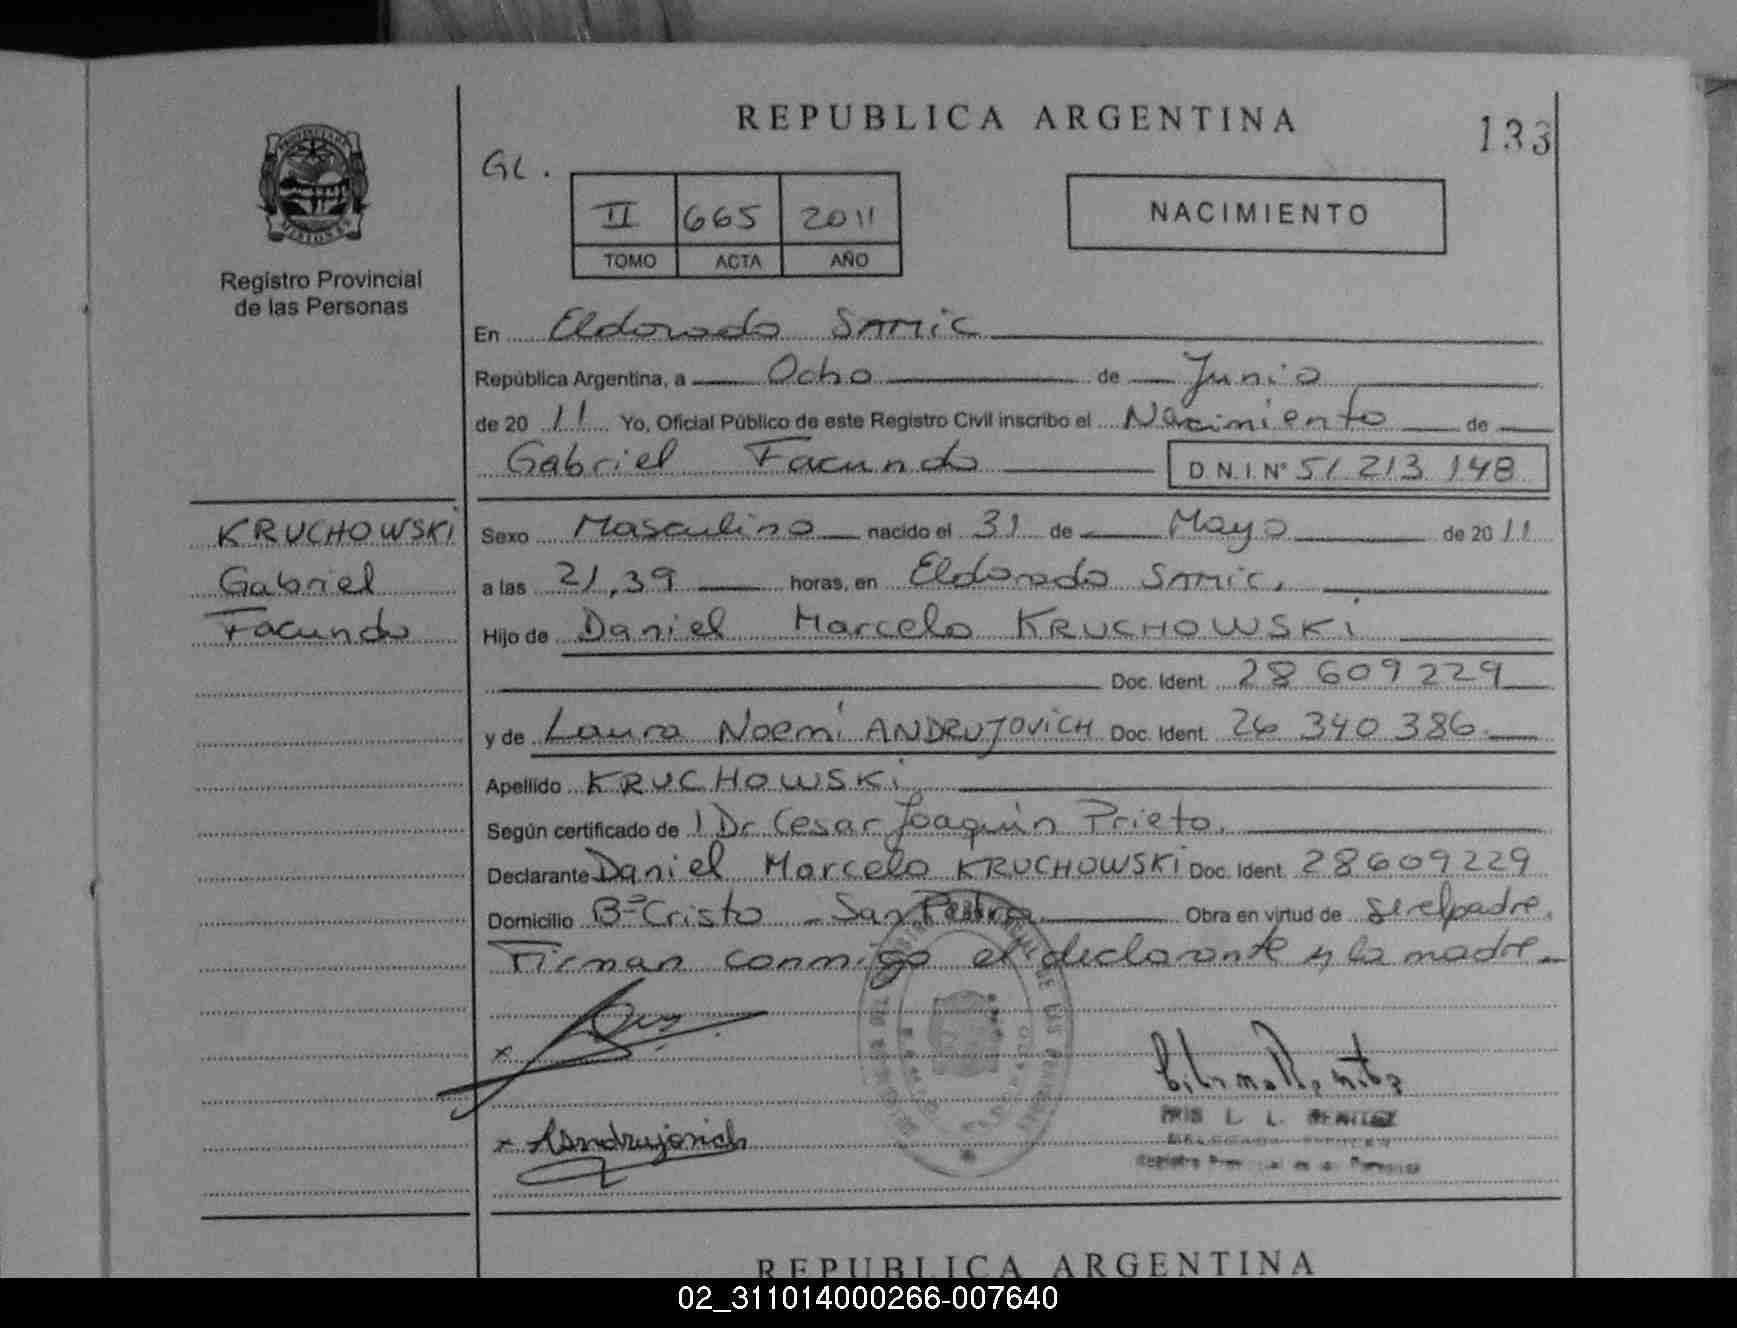 REPUBLICA ARGENTINA
133
GL.
II 665 2011
TOMO ACTA AÑO
NACIMIENTO
PROVINCIA
MISIONES
Registro Provincial
de las Personas
En Eldorado SAMIC
República Argentina, a Ocho de Junio
de 20 11 Yo, Oficial Público de este Registro Civil inscribo el Nacimiento de
Gabriel Facundo D.N.I.Nº 51 213 148
KRUCHOWSKI
Gabriel
Facundo
Sexo Masculino nacido el 31 de Mayo de 20 11
a las 21,39 horas, en Eldorado SAMIC,
Hijo de Daniel Marcelo KRUCHOWSKI
Doc. Ident. 28 609 229
y de Laura Noemi ANDRUJOVICH Doc. Ident. 26 340 386
Apellido KRUCHOWSKI
Según certificado de Dr Cesar Joaquin Prieto.
Declarante Daniel Marcelo KRUCHOWSKI Doc. Ident. 28609229
Domicilio Bº Cristo - San Pedro Obra en virtud de ser el padre.
Firman conmigo el declarante y la madre
x
x Andrujovich
REPUBLICA ARGENTINA
02_311014000266-007640